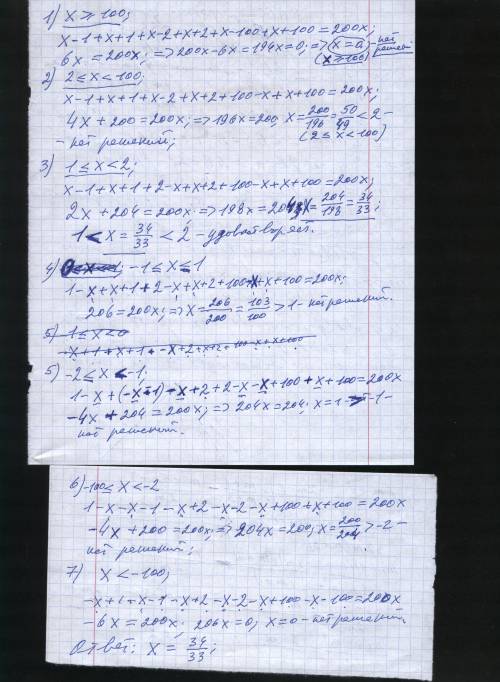 1) x ≥ 100;
x-1+x+1+x-2+x+2+x-100+x+100=200x;
6x=200x; => 200x-6x=194x=0; => x=0 - нет решений
(x≥100)
2) 2 ≤ x < 100;
x-1+x+1+x-2+x+2+100-x+x+100=200x;
4x+200=200x; => 196x=200, x=200/196=50/49<2 -
- нет решений; (2≤x<100)
3) 1 ≤ x < 2;
x-1+x+1+2-x+x+2+100-x+x+100=200x;
2x+204=200x => 198x=204, x=204/198=34/33;
1< x=34/33 <2 - удовлетворяет.
4) 0≤x<1; -1≤x≤1
1-x+x+1+2-x+x+2+100-x+x+100=200x;
206=200x; => x=206/200=103/100 >1 - нет решений.
5) -1≤x<0
-x+1+x+1+-x+2+x+2+100-x+x+100
5) -2≤x<-1;
1-x+(-x-1)-x+2+2-x-x+100+x+100=200x
-4x+204=200x; => 204x=204; x=1>-1-
нет решений.
6) -100≤x<-2
1-x-x-1-x+2-x-2-x+100+x+100=200x
-4x+200=200x; => 204x=200, x=200/204>-2-
нет решений;
7) x<-100;
-x+1-x-1-x+2-x-2-x+100-x-100=200x
-6x=200x; 206x=0; x=0 - нет решений.
Ответ: x=34/33;